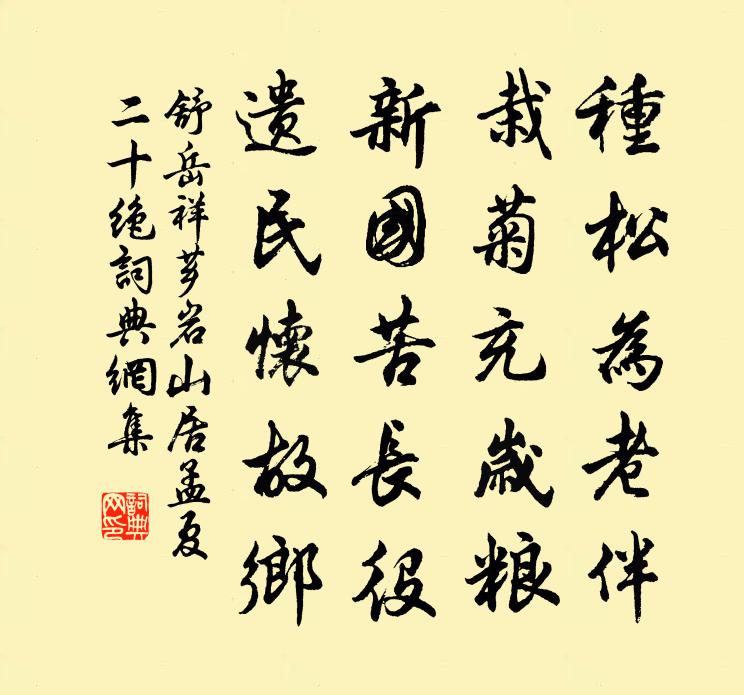 種松為老伴
栽菊充歲粮
新國苦長役
遺民懷故鄉
舒岳祥芗岩山居孟夏
二十绝詞典網集
詞典
网印